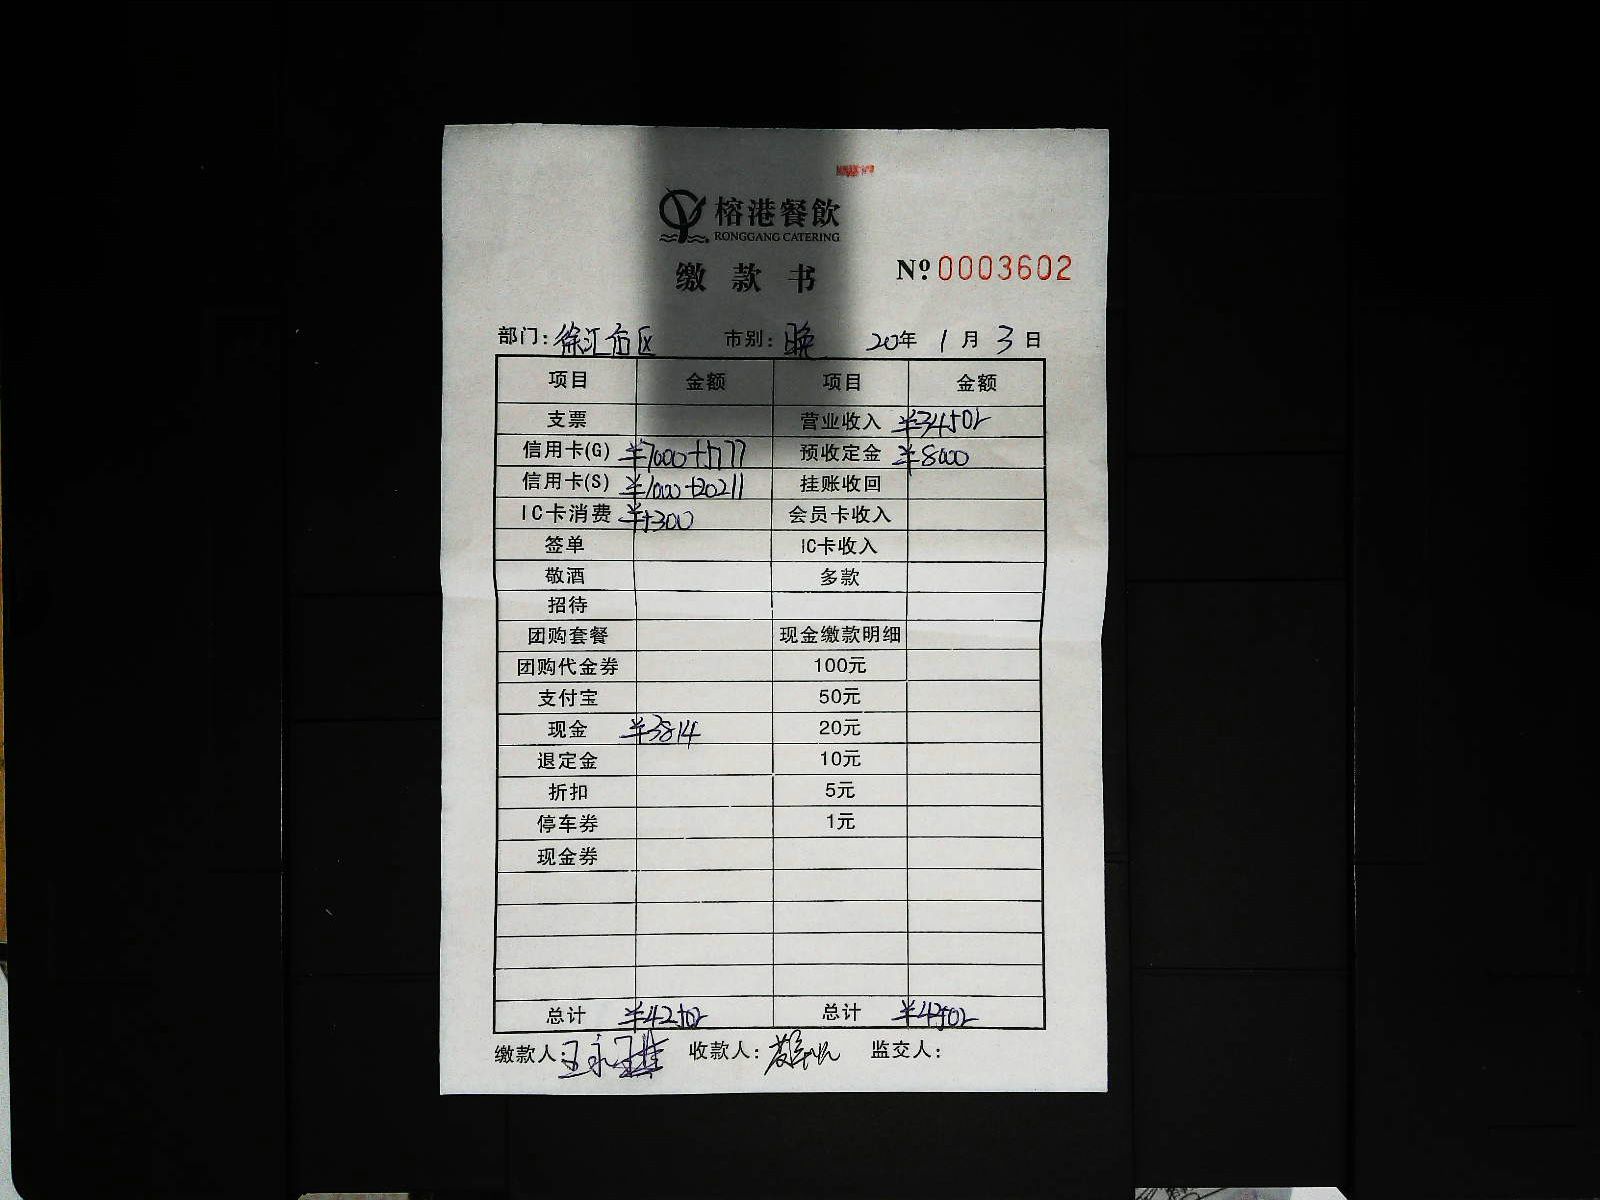 榕港餐飲
RONGGANG CATERING
缴款书
№ 0003602
部门: 徐汇 区 市别: 晚 20年 1月 3日
项目 金额 项目 金额
支票 营业收入 ¥34502
信用卡(G) ¥7000+5177 预收定金 ¥8000
信用卡(S) ¥1000+20211 挂账收回
IC卡消费 ¥5300 会员卡收入
签单 IC卡收入
敬酒 多款
招待
团购套餐 现金缴款明细
团购代金券 100元
支付宝 50元
现金 ¥3814 20元
退定金 10元
折扣 5元
停车券 1元
现金券
总计 ¥42502 总计 ¥42502
缴款人: 王永 收款人: 监交人: